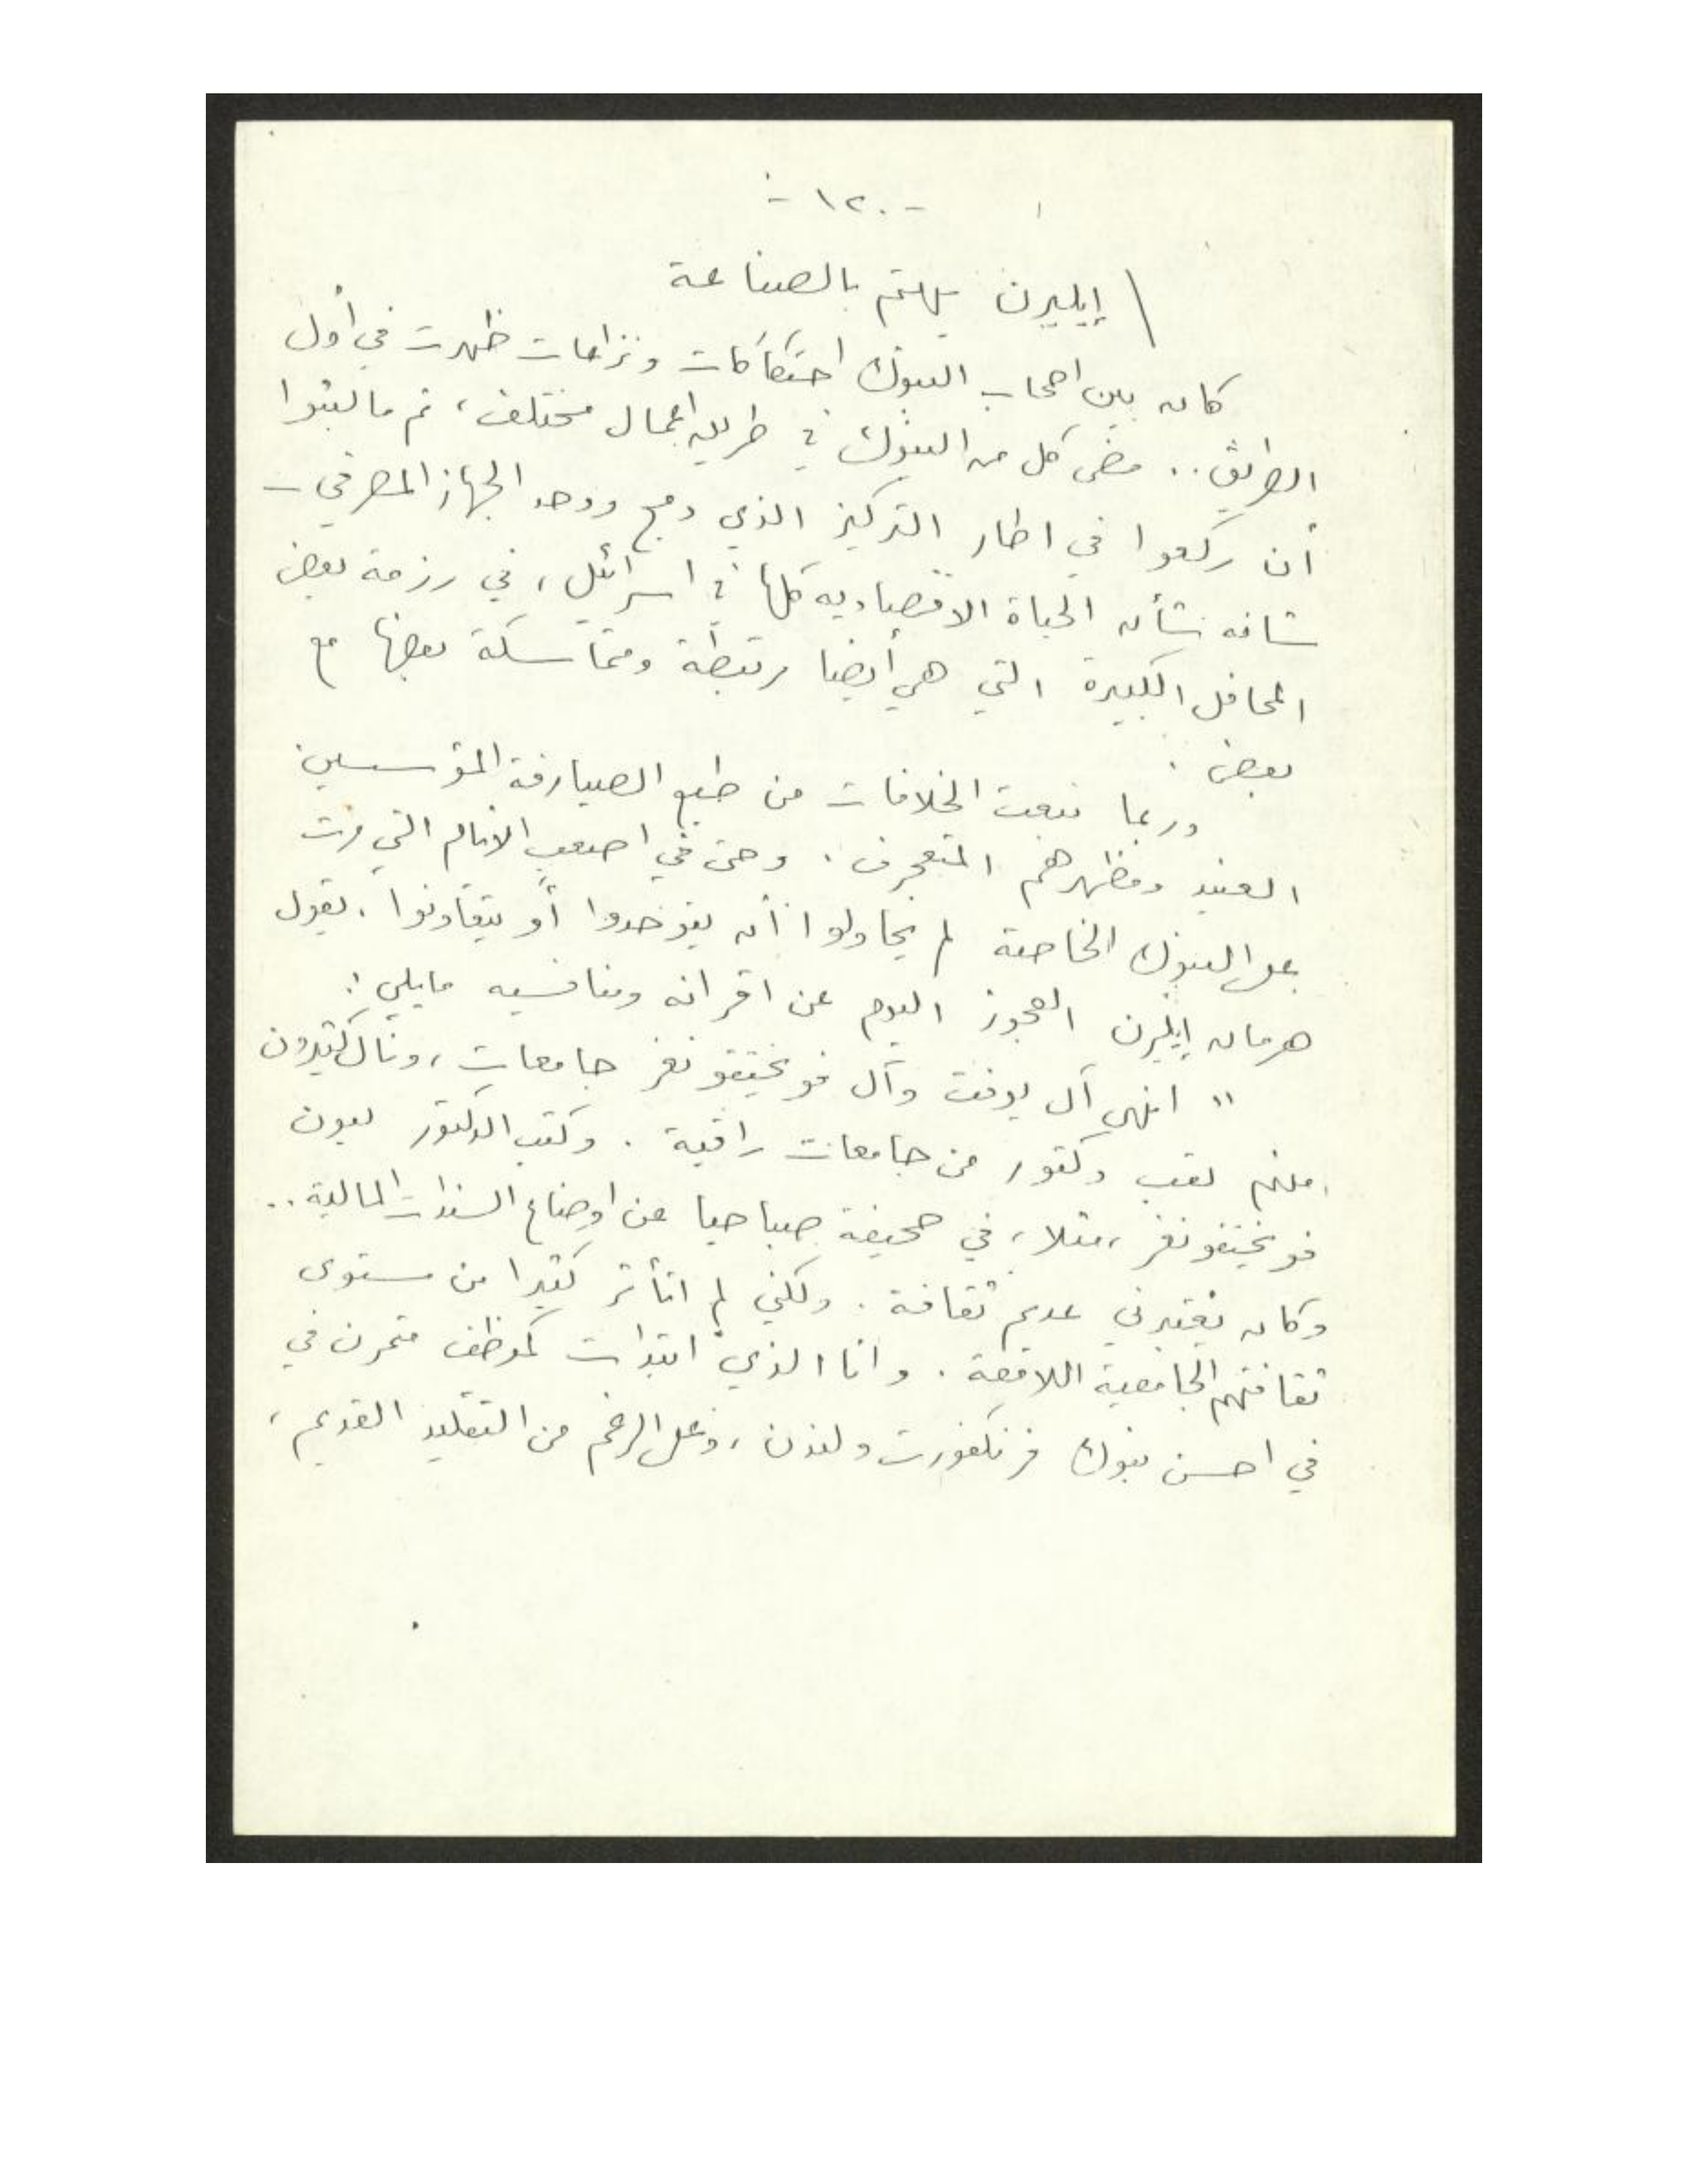 - ١٢٠ -
إيليرن يهتم بالصناعة
كان بين اصحاب البنوك احتكاكات ونزاعات ظهرت في أول
الطريق .. مضى كل من البنوك في طريق اعمال مختلف ، ثم ما لبثوا
أن ركعوا في اطار التركيز الذي دمج ووحد الجهاز المصرفي -
شانه شأن الحياة الاقتصاديه كلها في اسرائيل ، في رزمة بعض
المحافل الكبيرة التي هي أيضا مرتبطة ومتماسكة بعضها مع
بعض .
وربما نبعت الخلافات من طبع الصيارفة المؤسسين
العنيد ومظهرهم المتعجرف . وحتى في اصعب الايام التي مرت
على البنوك الخاصة لم يحاولوا أن يتوحدوا أو يتعاونوا . يقول
هرمان إيليرن العجوز اليوم عن اقرانه ومنافسيه مايلي :
" انهى آل يوفت وآل فويختفونغر جامعات ، ونال كثيرون
منهم لقب دكتور من جامعات راقية . وكتب الدكتور ليون
فويختفونغر ، مثلا ، في صحيفة صباحيا عن اوضاع السندات المالية ..
وكان يعتبرني عديم ثقافة . ولكني لم اتأثر كثيرا من مستوى
ثقافتهم الجامعية اللامعة . وانا الذي ابتدات كموظف متمرن في
في احسن بنوك فرنكفورت ولندن ، وعلى الرغم من التقليد القديم ،